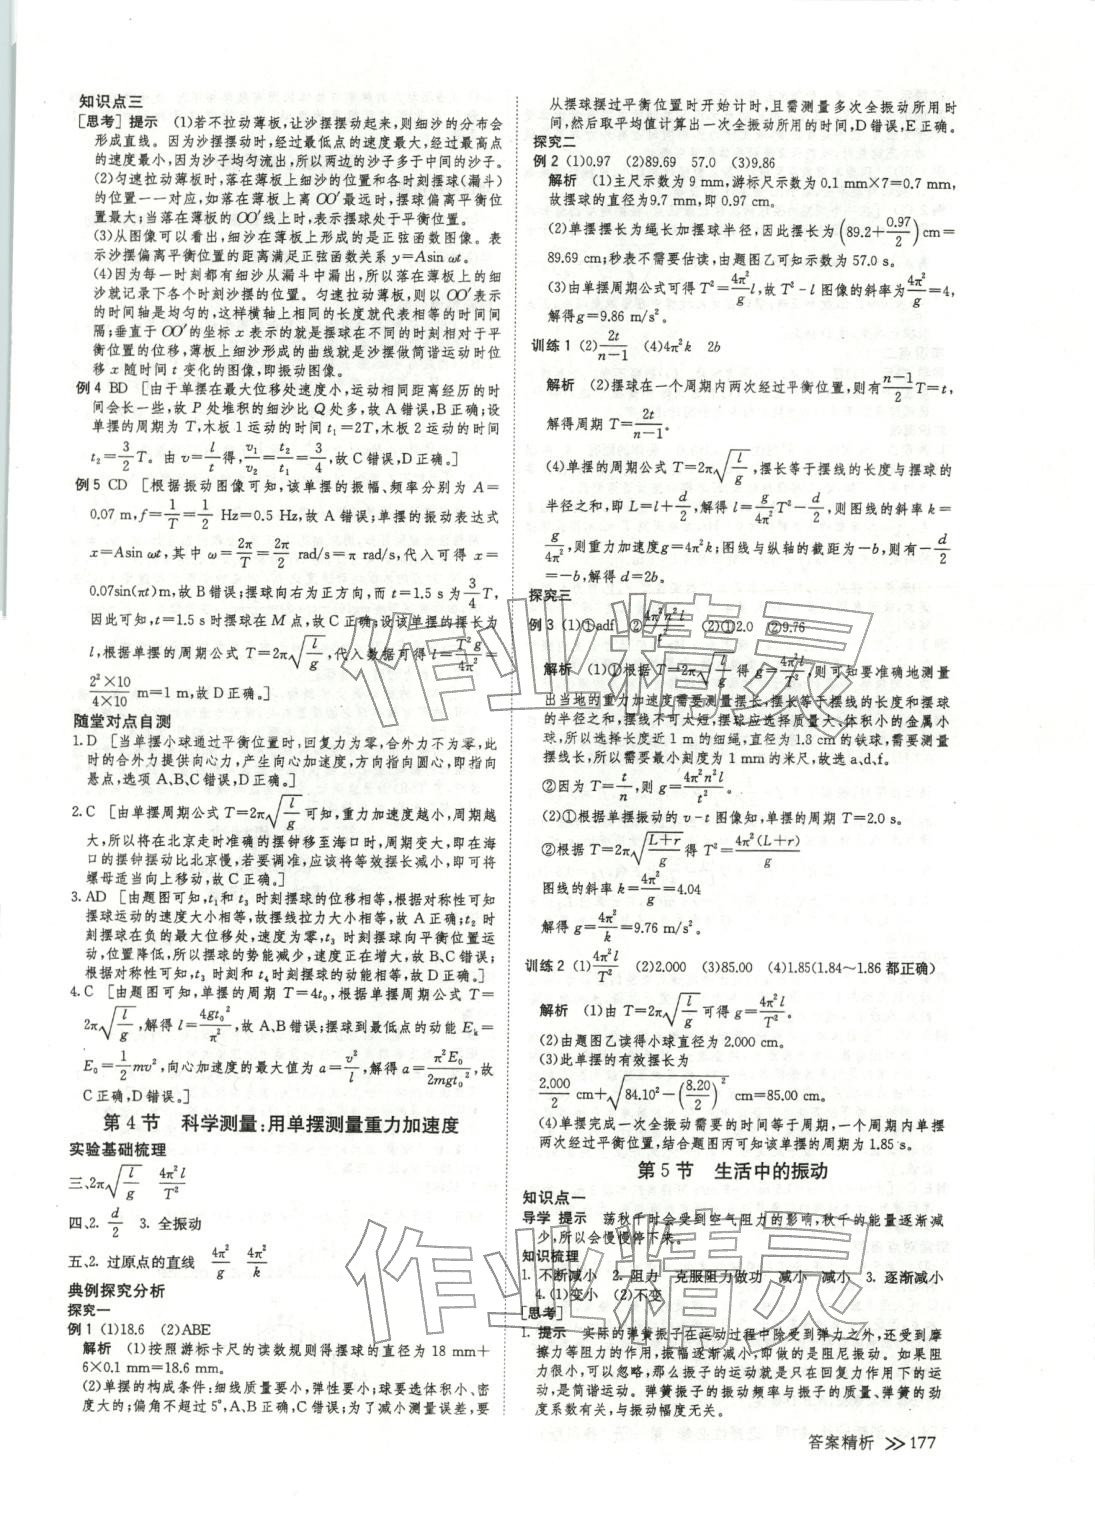 知识点三
[思考] 提示 (1)若不拉动薄板,让沙摆摆动起来,则细沙的分布会
形成直线。因为沙摆摆动时,经过最低点的速度最大,经过最高点
的速度最小,因为沙子均匀流出,所以两边的沙子多于中间的沙子。
(2)匀速拉动薄板时,落在薄板上细沙的位置和各时刻摆球(漏斗)
的位置一一对应,如落在薄板上离OO′最远时,摆球偏离平衡位
置最大;当落在薄板的OO′线上时,表示摆球处于平衡位置。
(3)从图像可以看出,细沙在薄板上形成的是正弦函数图像。表
示沙摆偏离平衡位置的距离满足正弦函数关系y=Asin ωt。
(4)因为每一时刻都有细沙从漏斗中漏出,所以落在薄板上的细
沙就记录下各个时刻沙摆的位置。匀速拉动薄板,则以OO′表示
的时间轴是均匀的,这样横轴上相同的长度就代表相等的时间间
隔;垂直于OO′的坐标x表示的就是摆球在不同的时刻相对于平
衡位置的位移,薄板上细沙形成的曲线就是沙摆做简谐运动时位
移x随时间t变化的图像,即振动图像。
例4 BD [由于单摆在最大位移处速度小,运动相同距离经历的时
间会长一些,故P处堆积的细沙比Q处多,故A错误,B正确;设
单摆的周期为T,木板1运动的时间t₁=2T,木板2运动的时间
t₂=3/2 T。由v=l/t得,v₁/v₂=t₂/t₁=3/4,故C错误,D正确。]
例5 CD [根据振动图像可知,该单摆的振幅、频率分别为A=
0.07 m,f=1/T=1/2 Hz=0.5 Hz,故A错误;单摆的振动表达式
x=Asin ωt,其中ω=2π/T=2π/2 rad/s=π rad/s,代入可得x=
0.07sin(πt)m,故B错误;摆球向右为正方向,而t=1.5 s为3/4 T,
因此可知,t=1.5 s时摆球在M点,故C正确;设该单摆的摆长为
l,根据单摆的周期公式T=2π√(l/g),代入数据可得l=T²g/4π²=
2²×10/4×10 m=1 m,故D正确。]
随堂对点自测
1.D [当单摆小球通过平衡位置时,回复力为零,合外力不为零,此
时的合外力提供向心力,产生向心加速度,方向指向圆心,即指向
悬点,选项A、B、C错误,D正确。]
2.C [由单摆周期公式T=2π√(l/g)可知,重力加速度越小,周期越
大,所以将在北京走时准确的摆钟移至海口时,周期变大,即在海
口的摆钟摆动比北京慢,若要调准,应该将等效摆长减小,即可将
螺母适当向上移动,故C正确。]
3.AD [由题图可知,t₁和t₃时刻摆球的位移相等,根据对称性可知
摆球运动的速度大小相等,故摆线拉力大小相等,故A正确;t₂时
刻摆球在负的最大位移处,速度为零,t₃时刻摆球向平衡位置运
动,位置降低,所以摆球的势能减少,速度正在增大,故B、C错误;
根据对称性可知,t₃时刻和t₄时刻摆球的动能相等,故D正确。]
4.C [由题图可知,单摆的周期T=4t₀,根据单摆周期公式T=
2π√(l/g),解得l=4gt₀²/π²,故A、B错误;摆球到最低点的动能Eₖ=
E₀=1/2 mv²,向心加速度的最大值为a=v²/l,解得a=π²E₀/2mgt₀²,故
C正确,D错误。]
第4节 科学测量:用单摆测量重力加速度
实验基础梳理
三、2π√(l/g) 4π²l/T²
四、2. d/2 3. 全振动
五、2. 过原点的直线 4π²/g 4π²/k
典例探究分析
探究一
例1 (1)18.6 (2)ABE
解析 (1)按照游标卡尺的读数规则得摆球的直径为18 mm+
6×0.1 mm=18.6 mm。
(2)单摆的构成条件:细线质量要小,弹性要小;球要体积小、密
度大;偏角不超过5°,A、B正确,C错误;为了减小测量误差,要
从摆球摆过平衡位置时开始计时,且需测量多次全振动所用时
间,然后取平均值计算出一次全振动所用的时间,D错误,E正确。
探究二
例2 (1)0.97 (2)89.69 57.0 (3)9.86
解析 (1)主尺示数为9 mm,游标尺示数为0.1 mm×7=0.7 mm,
故摆球的直径为9.7 mm,即0.97 cm。
(2)单摆摆长为绳长加摆球半径,因此摆长为(89.2+0.97/2)cm=
89.69 cm;秒表不需要估读,由题图乙可知示数为57.0 s。
(3)由单摆周期公式可得T²=4π²/g l,故T²-l图像的斜率为4π²/g=4,
解得g=9.86 m/s²。
训练1 (2)2t/n−1 (4)4π²k 2b
解析 (2)摆球在一个周期内两次经过平衡位置,则有n−1/2 T=t,
解得周期T=2t/n−1。
(4)单摆的周期公式T=2π√(l/g),摆长等于摆线的长度与摆球的
半径之和,即L=l+d/2,解得l=g/4π² T²−d/2,则图线的斜率k=
g/4π²,则重力加速度g=4π²k;图线与纵轴的截距为−b,则有−d/2
=−b,解得d=2b。
探究三
例3 (1)①adf ②4π²n²l/t² (2)①2.0 ②9.76
解析 (1)①根据T=2π√(l/g)得g=4π²l/T²,则可知要准确地测量
出当地的重力加速度需要测量摆长,摆长等于摆线的长度和摆球
的半径之和,摆线不可太短,摆球应选择质量大、体积小的金属小
球,所以选择长度近1 m的细绳,直径为1.8 cm的铁球,需要测量
摆线长,所以需要最小刻度为1 mm的米尺,故选a、d、f。
②因为T=t/n,则g=4π²n²l/t²。
(2)①根据单摆振动的v-t图像知,单摆的周期T=2.0 s。
②根据T=2π√(L+r/g)得T²=4π²(L+r)/g
图线的斜率k=4π²/g=4.04
解得g=4π²/k=9.76 m/s²。
训练2 (1)4π²l/T² (2)2.000 (3)85.00 (4)1.85(1.84~1.86都正确)
解析 (1)由T=2π√(l/g)可得g=4π²l/T²。
(2)由题图乙读得小球直径为2.000 cm。
(3)此单摆的有效摆长为
2.000/2 cm+√(84.10²−(8.20/2)²) cm=85.00 cm。
(4)单摆完成一次全振动需要的时间等于周期,一个周期内单摆
两次经过平衡位置,结合题图丙可知该单摆的周期为1.85 s。
第5节 生活中的振动
知识点一
导学 提示 荡秋千时会受到空气阻力的影响,秋千的能量逐渐减
少,所以会慢慢停下来。
知识梳理
1. 不断减小 2. 阻力 克服阻力做功 减小 减小 3. 逐渐减小
4.(1)变小 (2)不变
[思考]
1. 提示 实际的弹簧振子在运动过程中除受到弹力之外,还受到摩
擦力等阻力的作用,振幅逐渐减小,即做的是阻尼振动。如果阻
力很小,可以忽略,那么振子的运动就是只在回复力作用下的运
动,是简谐运动。弹簧振子的振动频率与振子的质量、弹簧的劲
度系数有关,与振动幅度无关。
答案精析 >> 177
作业精灵
作业精灵